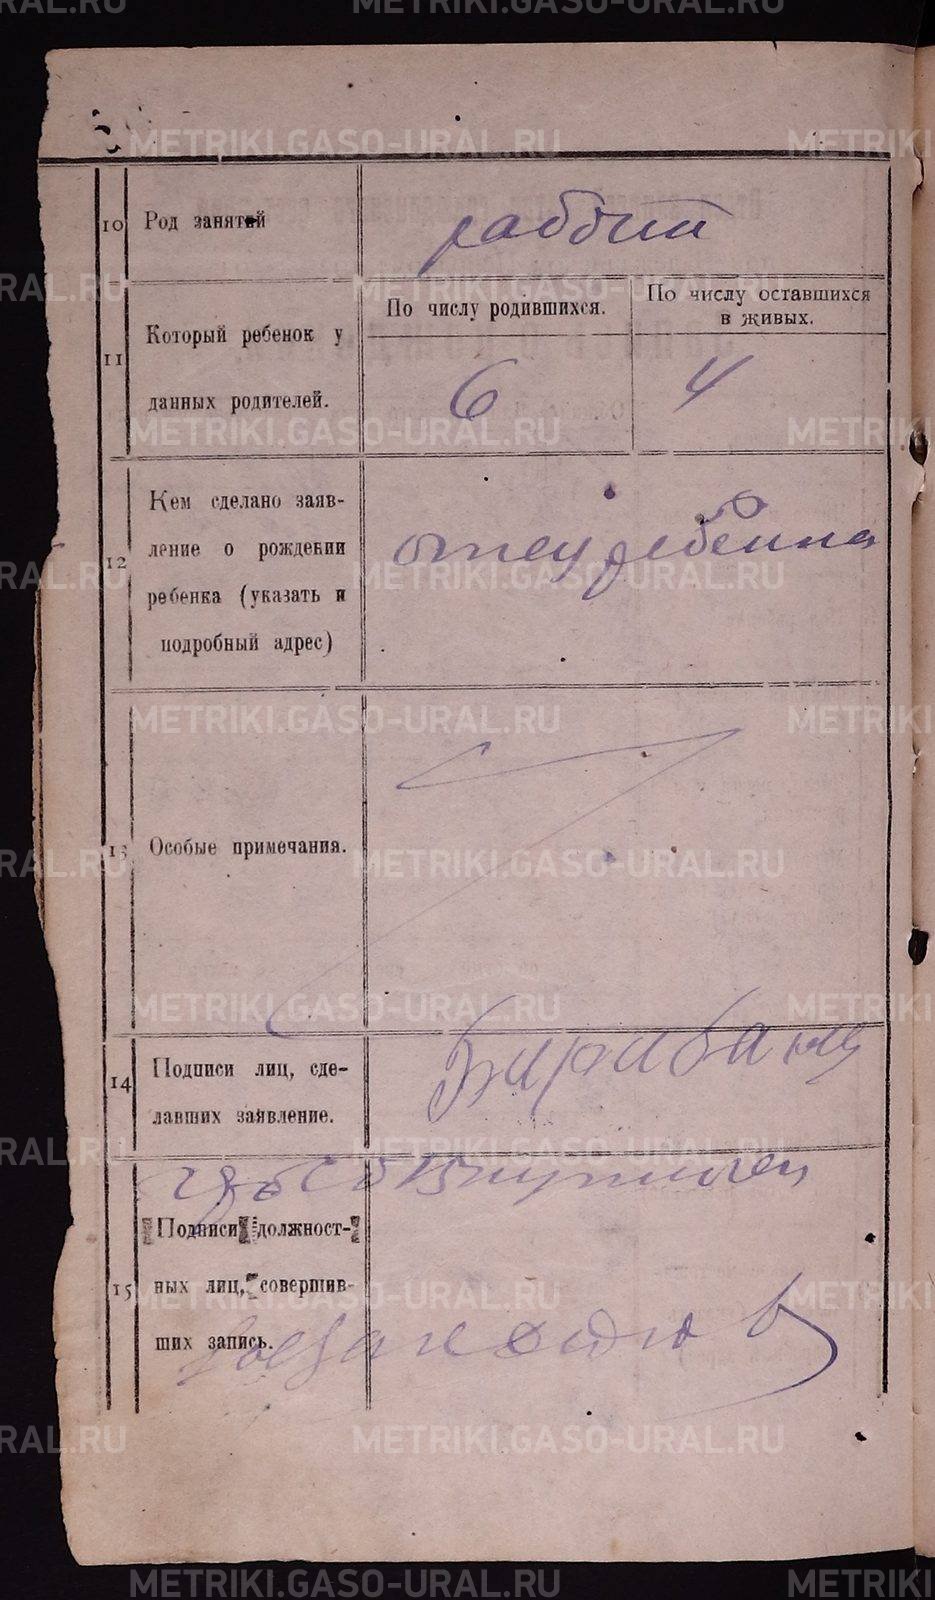 METRIKI.GASO-URAL.RU
10 Род занятий
рабочий
11 Который ребенок у
данных родителей.
По числу родившихся.
По числу оставшихся
в живых.
6
4
12 Кем сделано заяв-
ление о рождении
ребенка (указать и
подробный адрес)
отец ребенка
13 Особые примечания.
14 Подписи лиц, сде-
лавших заявление.
15 Подписи должност-
ных лиц, совершив-
ших запись.